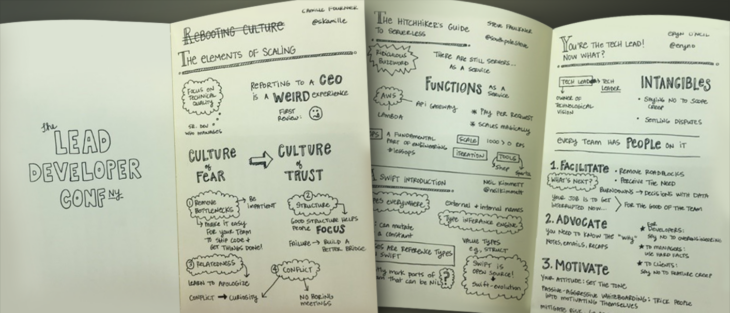 the
LEAD
DEVELOPER
CONF NY
REBOOTING CULTURE
CAMILLE FOURNIER
@skamille
THE ELEMENTS OF SCALING
FOCUS ON
TECHNICAL
QUALITY
REPORTING TO A CEO
IS A WEIRD EXPERIENCE
FIRST
REVIEW:
SR. DEV →
NEW MANAGER
CULTURE
of
FEAR
CULTURE
of
TRUST
① REMOVE
BOTTLENECKS
BE
IMPATIENT
MAKE IT EASY
FOR YOUR TEAM
TO SHIP CODE +
GET THINGS DONE!
② STRUCTURE
GOOD STRUCTURE HELPS
PEOPLE FOCUS
FAILURE → BUILD A
BETTER BRIDGE
③ RELATEDNESS
LEARN TO APOLOGIZE
CONFLICT → CURIOSITY
④ CONFLICT
NO BORING
MEETINGS
THE HITCHHIKER'S GUIDE
TO SERVERLESS
STEVE FAULKNER
@southpolesteve
RIDICULOUS
BUZZWORD
THERE ARE STILL SERVERS...
AS A SERVICE
FUNCTIONS AS A
SERVICE
AWS
LAMBDA
API GATEWAY
* PAY PER REQUEST
* SCALES MAGICALLY
A FUNDAMENTAL
PART OF ENGINEERING
SCALE
ITERATION
TOOLS
SWIFT INTRODUCTION
NEIL KIMMETT
@neilkimmett
EVERYWHERE
external + internal names
TYPE INFERENCE ENGINE
can mutate
constant
ARE REFERENCE TYPES
SWIFT
VALUE TYPES
e.g. STRUCT
SWIFT IS
OPEN SOURCE!
swift-evolution
mark parts of
that can be NIL
?
YOU'RE THE TECH LEAD!
NOW WHAT?
@eryno
TECH LEAD
TECH
LEADER
OWNER OF
TECHNOLOGICAL
VISION
INTANGIBLES
• SAYING NO TO SCOPE
CREEP
• SETTLING DISPUTES
EVERY TEAM HAS PEOPLE ON IT
1. FACILITATE
• REMOVE ROADBLOCKS
• PERCEIVE THE NEED
WHAT'S NEXT?
BURNDOWNS → DECISIONS WITH DATA
YOUR JOB IS TO GET
INTERRUPTED NOW...
FOR THE GOOD OF THE TEAM
2. ADVOCATE
YOU NEED TO KNOW THE "WHY"
NOTES, EMAILS, RECAPS
* FOR
DEVELOPERS:
SAY NO TO OVERENGINEERING
* TO MANAGERS:
USE HARD FACTS
* TO CLIENTS:
SAY NO TO FEATURE CREEP
3. MOTIVATE
YOUR ATTITUDE: SET THE TONE
PASSIVE-AGGRESSIVE WHITEBOARDING: TRICK PEOPLE
INTO MOTIVATING THEMSELVES
MITIGATE RISK